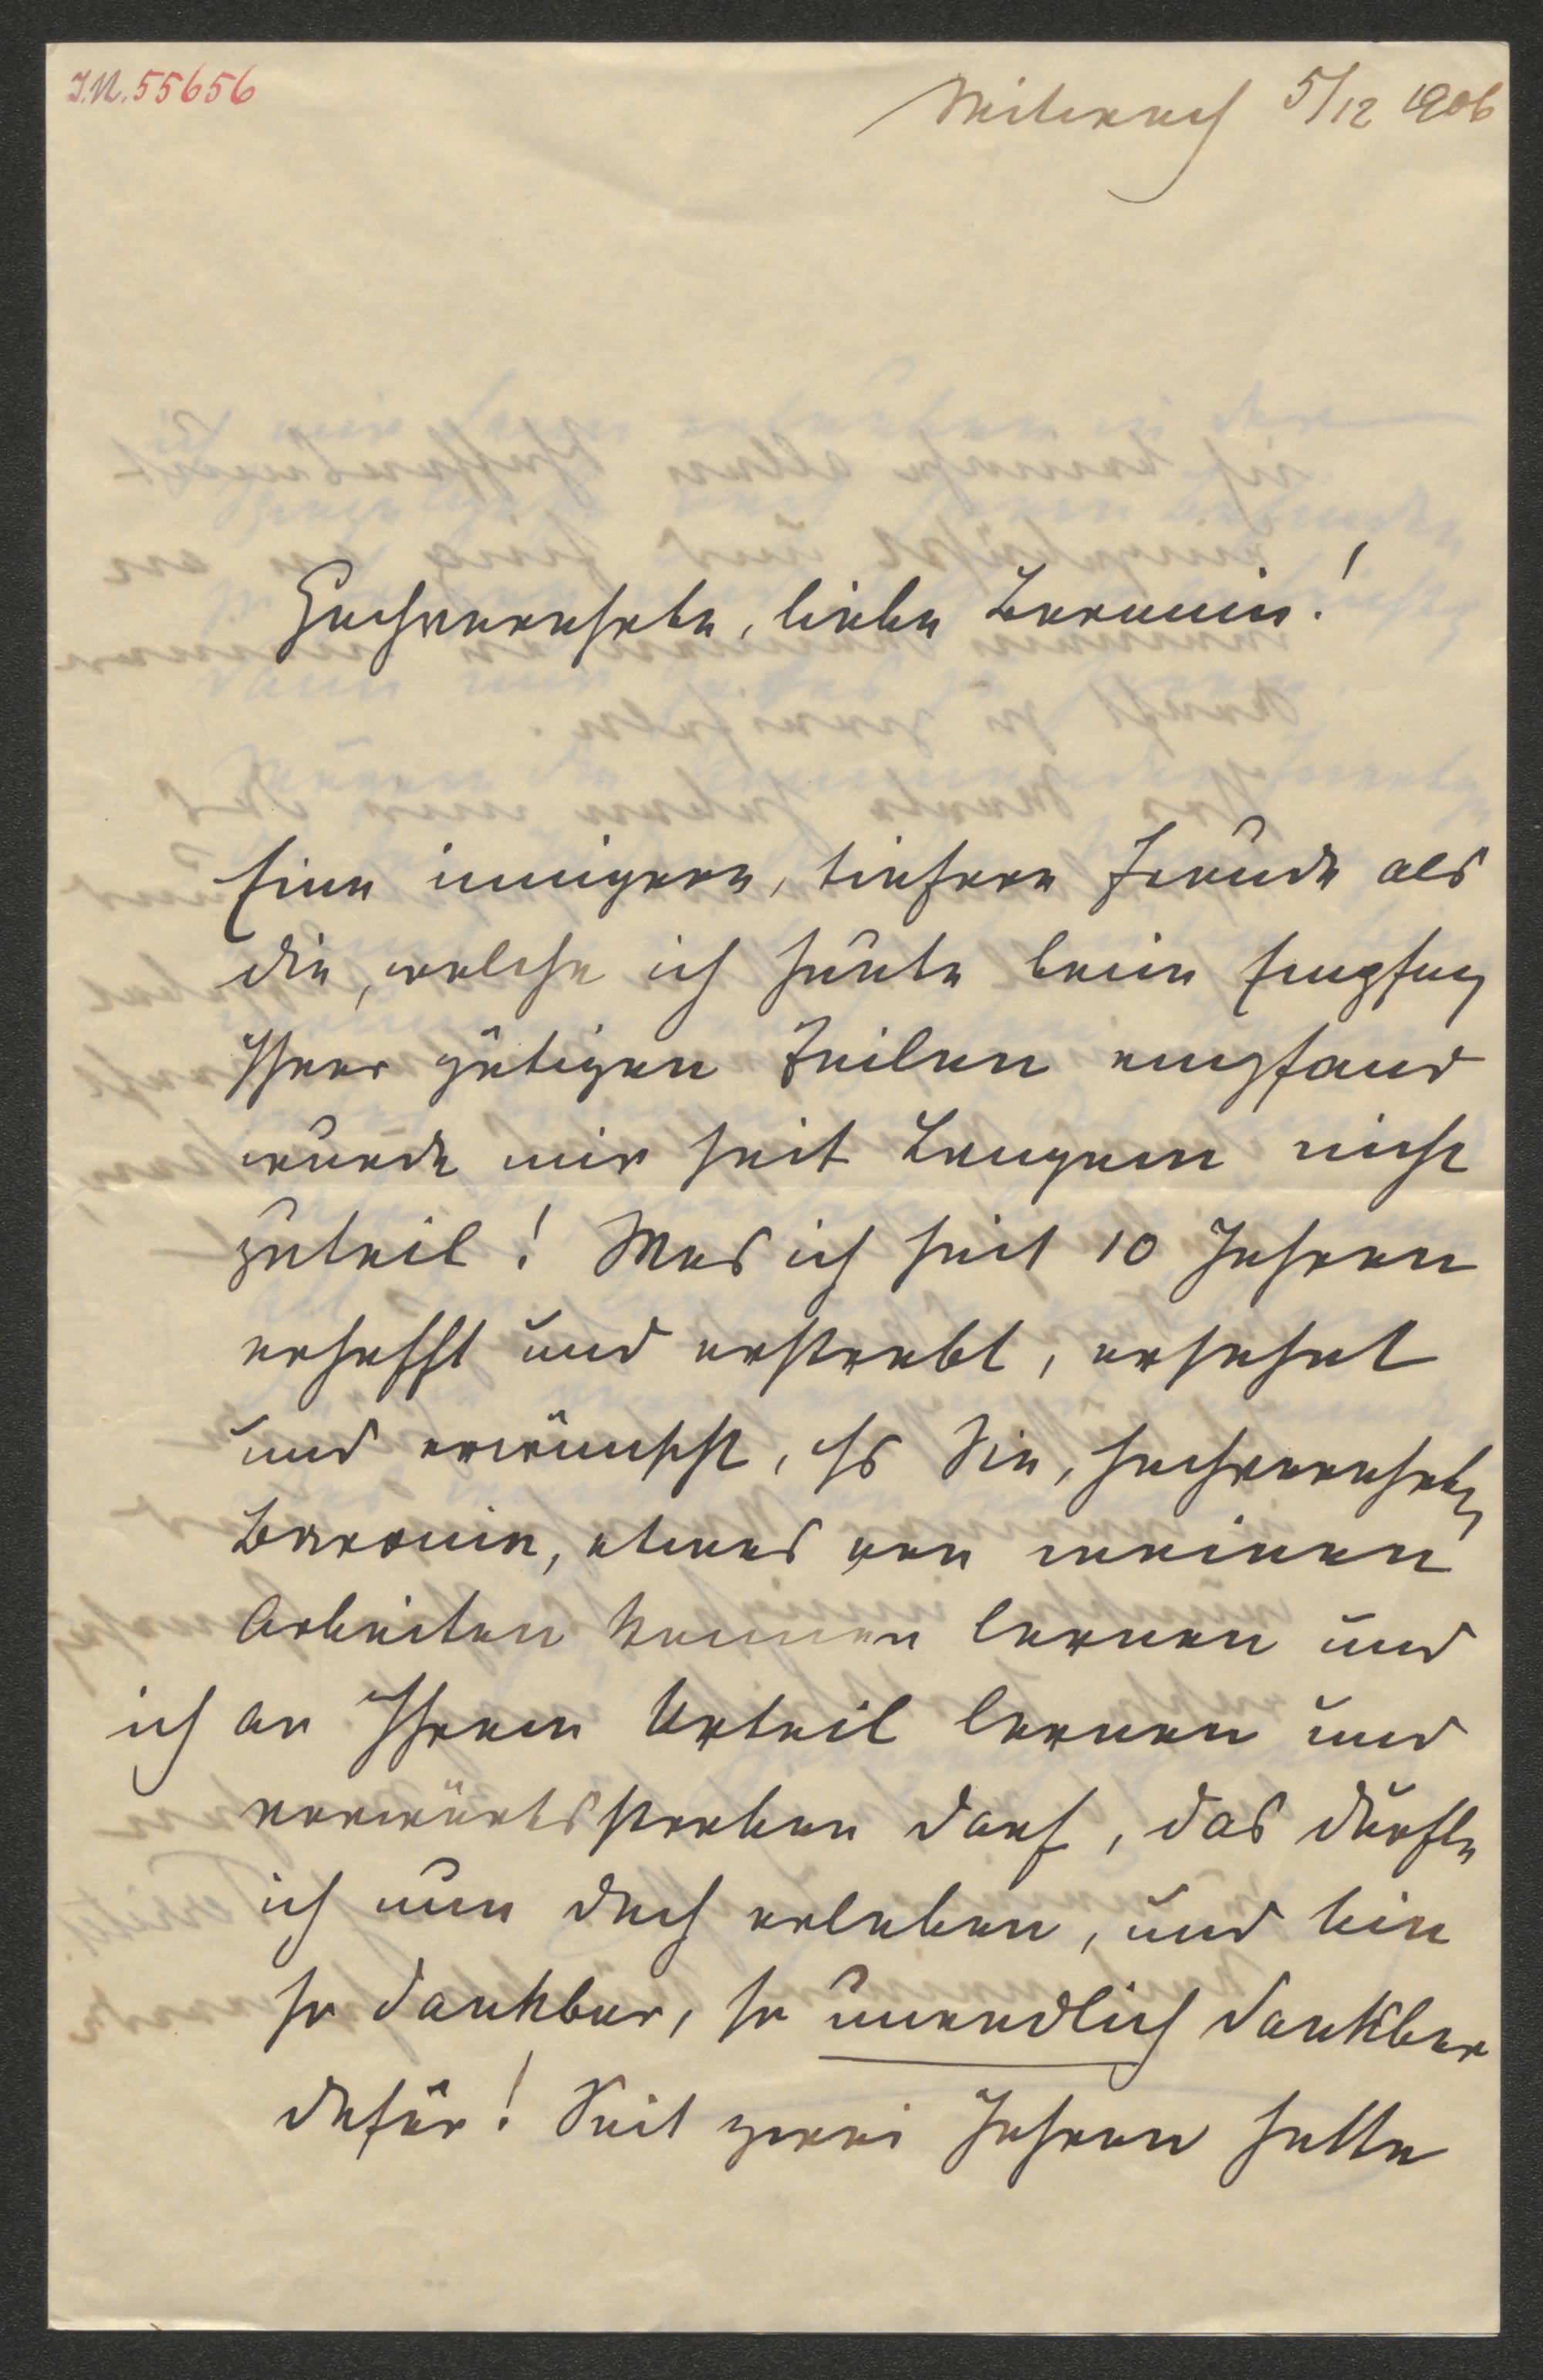 J.N. 55656
5/12 1906
Hochverehrte, liebe Baronin!
Eine innigere, tiefere Freude als
die, welche ich heute beim Empfang
Ihrer gütigen Zeilen empfand
wurde mir seit Langem nicht
zuteil! Was ich seit 10 Jahren
erhofft und erstrebt, ersehnt
und erwünscht, daß Sie, hochverehrte
Baronin, etwas von meinen
Arbeiten kennen lernen und
ich an Ihrem Urteil lernen und
vorwärtsstreben darf, das durfte
ich nun doch erleben, und bin
so dankbar, so unendlich dankbar
dafür! Seit zwei Jahren hatte